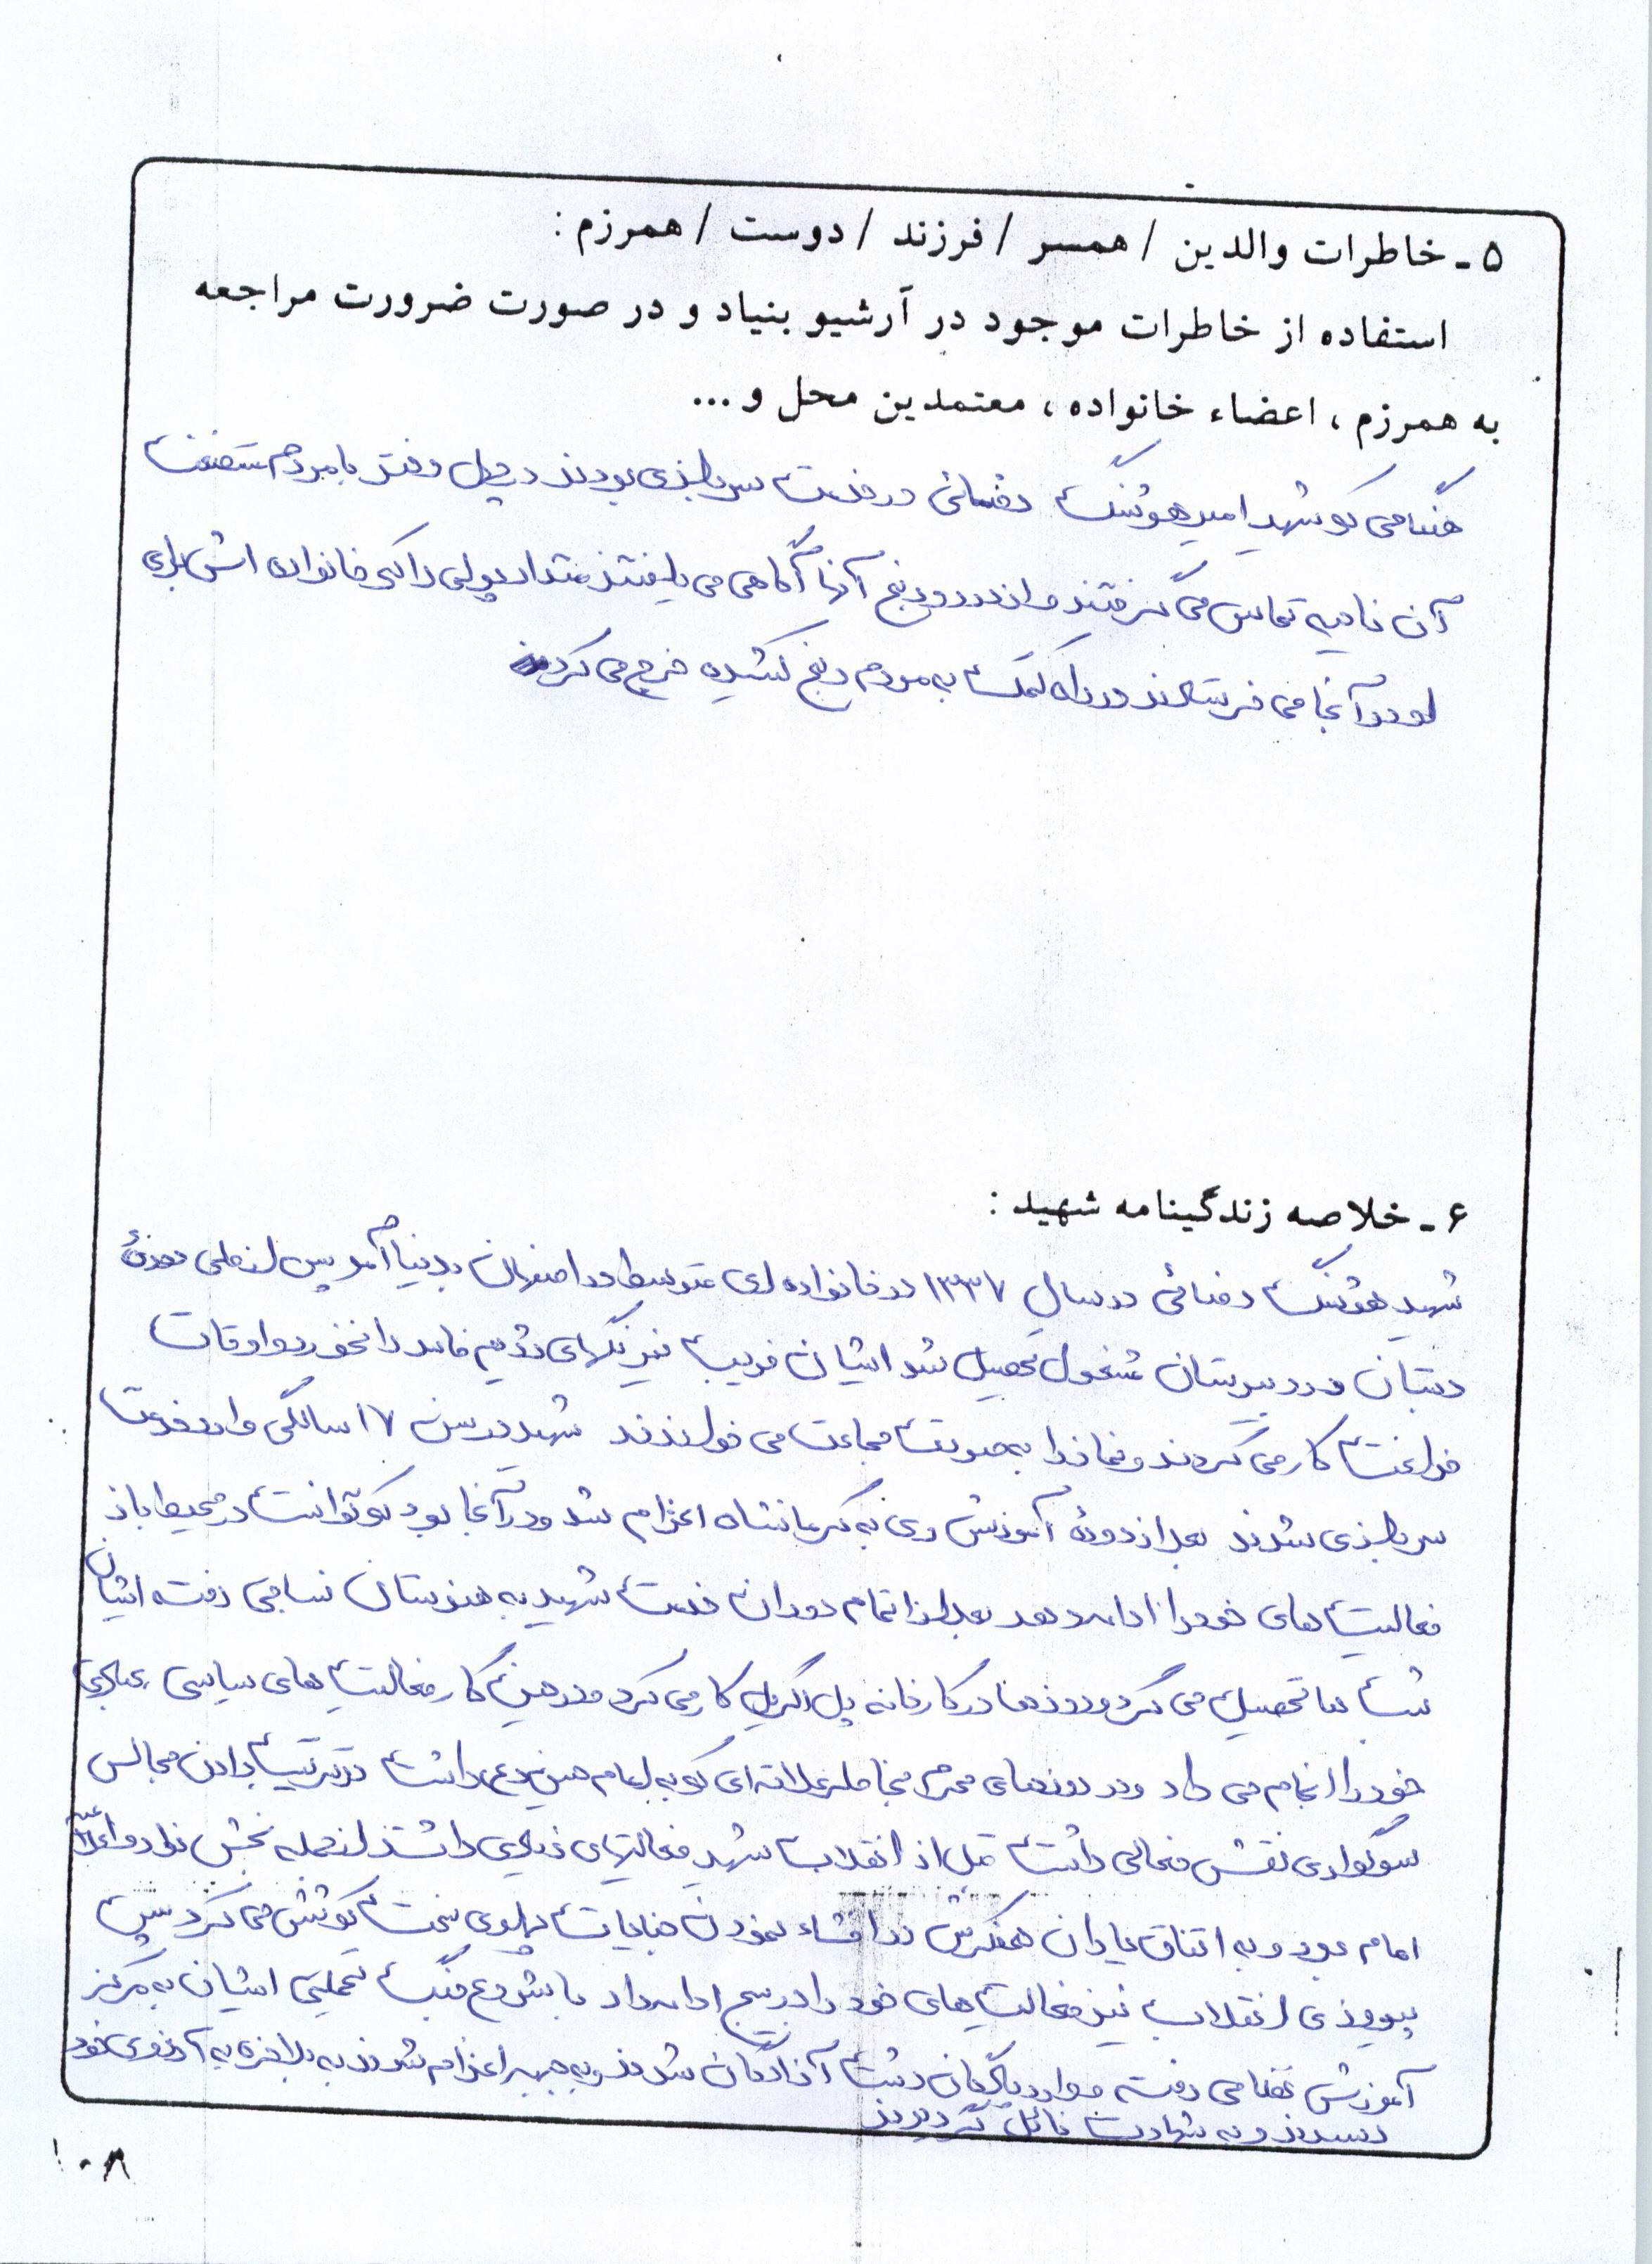 ۵ - خاطرات والدین / همسر / فرزند / دوست / همرزم :
استفاده از خاطرات موجود در آرشیو بنیاد و در صورت ضرورت مراجعه
به همرزم ، اعضاء خانواده ، معتمدین محل و ...
هنگامی که شهید امیر هوشنگ در خدمت سربازی بودند در پول رفتند با مردم مستضعف
آن ناحیه تماس می گرفتند و از درد و رنج آنها آگاهی می یافتند مقدار پولی را که خانواده اش برای
او در آنجا می فرستادند در راه کمک به مردم رنج کشیده خرج می کردند
۶ - خلاصه زندگینامه شهید :
شهید هوشنگ در سال ۱۳۳۷ در خانواده ای متوسط در اصفهان بدنیا آمد پس از طی دوره
دبستان در دبیرستان مشغول تحصیل شد ایشان فریب نیرنگهای رژیم فاسد را نخورد و اوقات
فراغت کار می کردند و نماز را به صورت جماعت می خواندند شهید در سن ۱۷ سالگی وارد خدمت
سربازی شدند بعد از دوره آموزش وی به کرمانشاه اعزام شد و در آنجا بود که توانست در محیط باز
فعالیت های خود را ادامه دهد بعد از اتمام دوران خدمت شهید به هنرستان نساجی رفته ایشان
شب ها تحصیل می کرد و روزها در کارخانه پلی اکریل کار می کرد و در حین کار فعالیت های سیاسی
خود را انجام می داد و در روزهای محرم بخاطر علاقه ای که به امام حسین (ع) داشت در ترتیب دادن مجالس
سوگواری نقش فعالی داشت قبل از انقلاب شهید فعالیتهای زیادی داشتند از جمله پخش نوار و اعلامیه
امام بود و به اتفاق یاران همفکرش در افشاء نمودن جنایات پهلوی سخت کوشش می کرد پس
پیروزی انقلاب نیز فعالیت های خود را در بسیج ادامه داد با شروع جنگ تحمیلی ایشان به مرکز
آموزش نظامی رفته و وارد دشت آزادگان شدند و به جبهه اعزام شدند به بالاخره به آرزوی خود
رسیدند و به شهادت نائل گردیدند
۱۰۸